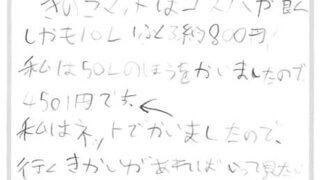 きのこマットはコスパが良く
しかも10L ふくろ約800円!
私は50Lのほうをかいましたので
4501円です。←
私はネットでかいましたので、
行くきかいがあればいって見たい